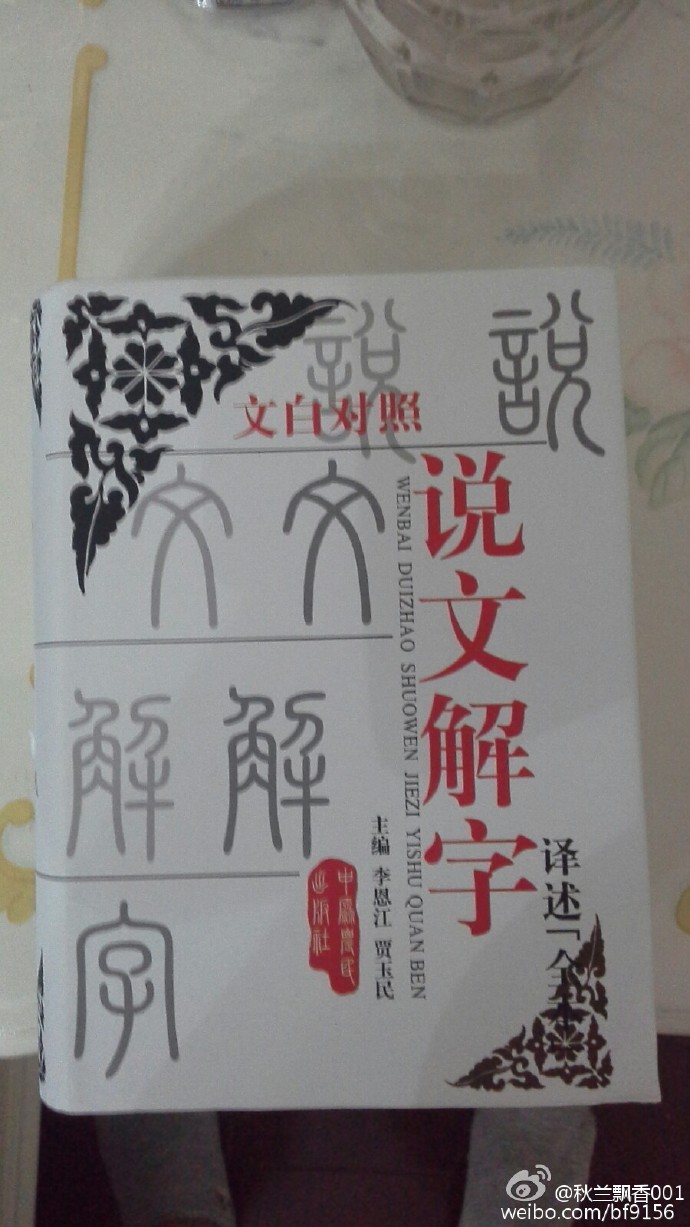 文白对照
说文解字
WENBAI DUIZHAO SHUOWEN JIEZI YISHU QUAN BEN
译述「全本」
主编 李恩江 贾玉民
說
說
文 文
解 解
字
中原農民
出版社
@秋兰飘香001
weibo.com/bf9156